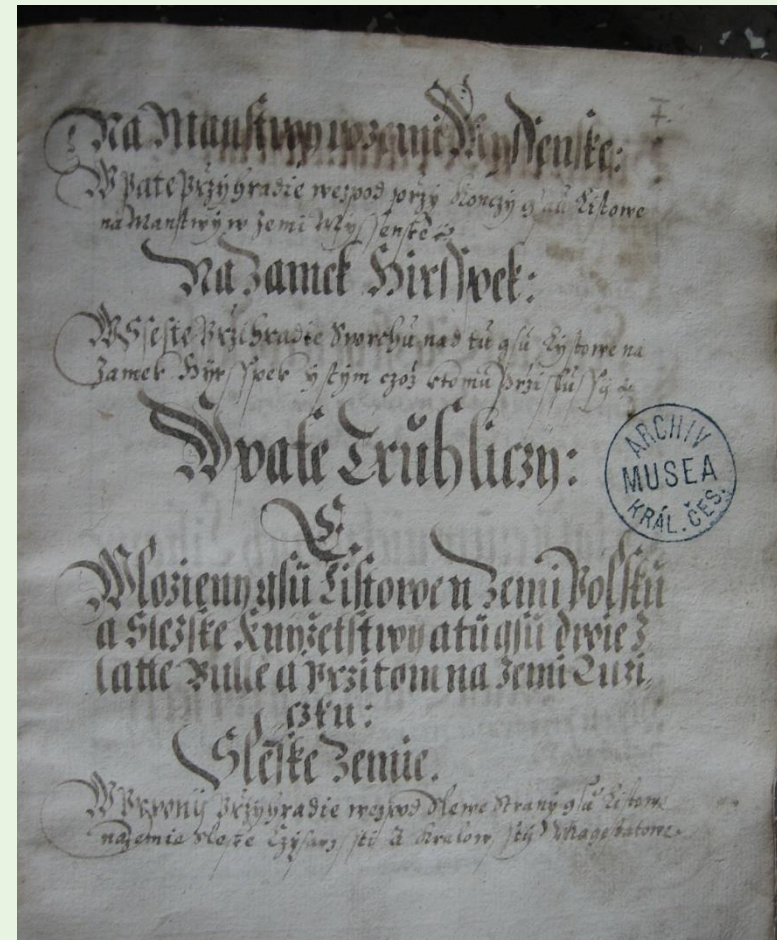 Na Manstwy w zemi Myssenske:
W Pate Przyhradie wezpod przy Konczy gsu Listowe
na Manstwy w Zemi Myssenske
Na Zamek Hirsspek:
W Sseste Przihradie Swrchu nad tu gsu Lystowe na
Zamek Hyrsspek y stym czoz ktomu Przislussy
W pate Truhliczy:
E.
Wlozieny gsu Listowe n Zemi Polsku
a Slezske Knyzetstwy a tu gsu dwie z
latte Bulle a Przitom na Zemi Luzi,
czku:
Sleske Zemie.
W Prwony Przyhradie wezpod Slewe Strany gsu Listowe
na zemie Sleske Czysarz a Kralow
ARCHIV
MUSEA
KRÁL. ČES.